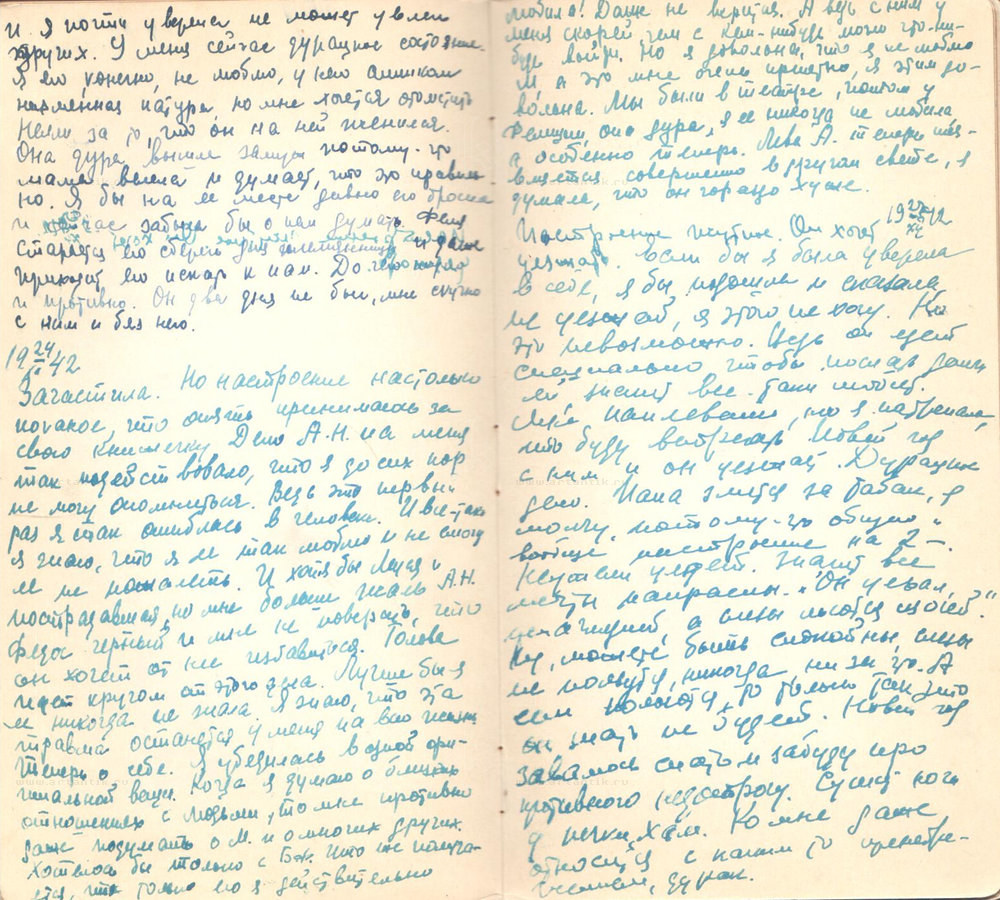 и я почти уверена не может увлечь
других. У меня сейчас дурацкое состояние.
Я его, конечно, не люблю, у него слишком
низменная натура, но мне хочется отомстить
Нелли за то, что он на ней женился.
Она дура, вышла замуж потому-что
мама велела и думает, что это правиль-
но. Я бы на ее месте давно его бросила
и сейчас забыла бы о нем думать. Феня
старается его сберечь для и даже
приходит его искать к нам. До чего
и противно. Он два дня не был, мне скучно
с ним и без него.
19 24 42
Зачастила. Но настроение настолько
поганое, что опять принимаюсь за
свою книжечку. Дело А.Н. на меня
так подействовало, что я до сих пор
не могу опомниться. Ведь это первый
раз я так ошиблась в человеке. И все-таки
я знаю, что я ее так люблю и не смогу
ее не пожалеть. И хотя бы Люся и
пострадавшая, но мне больше жаль А.Н.
Федя черный и мне не поверить, что
он хочет от нее избавиться. Голова
идет кругом от этого зла. Лучше бы я
ее никогда не знала. Я знаю, что эта
травма останется у меня на всю жизнь.
Теперь о себе. Я убедилась в одной ори-
гинальной вещи. Когда я думаю о близких
отношениях с людьми, то мне противно
даже подумать о М. и о многих других.
Хотелось бы только с Бок. Что же получа-
ется, что только его я действительно
любила! Даже не верится. А ведь с ним у
меня скорей чем с кем-нибудь могло что-ни-
будь выйти. Но я довольна, что я не люблю
М, а это мне очень приятно, я этим до-
вольна. Мы были в театре, потом у
Фелиции, она дура, я ее никогда не любила
а особенно теперь. Лева А. теперь
является совершенно в другом свете, я
думала, что он гораздо хуже.
19 27 42
XII
Настроение жуткое. Он хочет
уезжать. Если бы я была уверена
в себе, я бы подошла и сказала,
не уезжай, я этого не хочу. Но
это невозможно. Ведь он едет
специально чтобы послать деньги
ей, значит все-таки любит.
Мне наплевать, но я мечтала,
что буду встречать Новый год
с ним, и он уезжает. Дурацкое
дело. Папа злится за табак, я
молчу, потому-что общее и
вообще настроение на 2-.
Неужели уедет. Значит все
мечты напрасны. „Он уехал,
ненаглядный, а слезы льются из очей".
Ну, можете быть спокойны, слезы
не польются, никогда, ни за что. А
если польются, то только так, что
он знать не будет. Новый год
завалюсь спать и забуду про
противного недотрогу. Сушит ноги
у печки, хам. Ко мне даже
относится с каким-то пренебре-
жением, дурак.